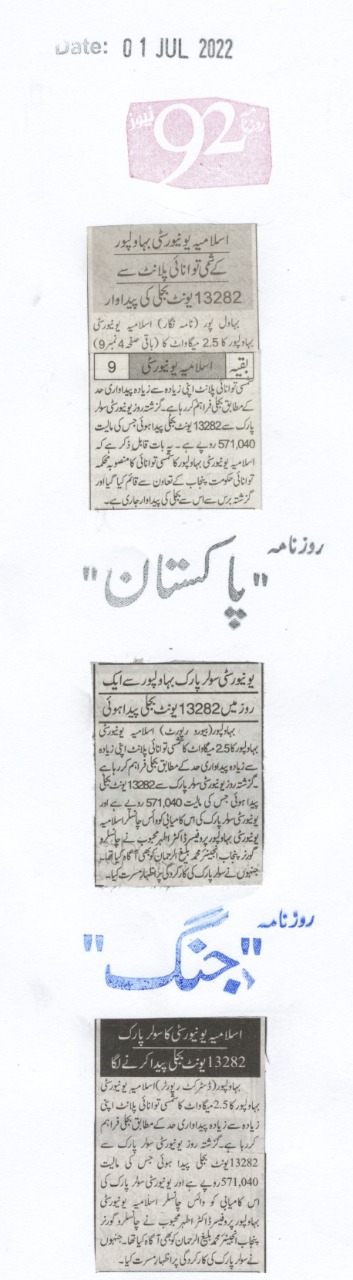 Date: 01 JUL 2022
روزنامہ 92 نیوز
اسلامیہ یونیورسٹی بہاولپور
کے شمسی توانائی پلانٹ سے
13282 یونٹ بجلی کی پیداوار
بہاول پور (نامہ نگار) اسلامیہ یونیورسٹی
بہاولپور کا 2.5 میگاواٹ کا (باقی صفحہ 4 نمبر 9)
بقیہ اسلامیہ یونیورسٹی 9
شمسی توانائی پلانٹ اپنی زیادہ سے زیادہ پیداواری حد
کے مطابق بجلی فراہم کر رہا ہے۔ گزشتہ روز یونیورسٹی سولر
پارک سے 13282 یونٹ بجلی پیدا ہوئی جس کی مالیت
571,040 روپے ہے۔ یہ بات قابل ذکر ہے کہ
اسلامیہ یونیورسٹی بہاولپور کا شمسی توانائی کا منصوبہ محکمہ
توانائی حکومت پنجاب کے تعاون سے قائم کیا گیا اور
گزشتہ برس سے اس سے بجلی کی پیداوار جاری ہے۔
روزنامہ
"پاکستان"
یونیورسٹی سولر پارک بہاولپور سے ایک
روز میں 13282 یونٹ بجلی پیدا ہوئی
بہاولپور (بیورو رپورٹ) اسلامیہ یونیورسٹی
بہاولپور کا 2.5 میگاواٹ کا شمسی توانائی پلانٹ اپنی زیادہ
سے زیادہ پیداواری حد کے مطابق بجلی فراہم کر رہا ہے
۔ گزشتہ روز یونیورسٹی سولر پارک سے 13282 یونٹ بجلی
پیدا ہوئی جس کی مالیت 571,040 روپے ہے اور
یونیورسٹی سولر پارک کی اس کامیابی کو وائس چانسلر اسلامیہ
یونیورسٹی بہاولپور پروفیسر ڈاکٹر اطہر محبوب نے چانسلر و
گورنر پنجاب انجینئر محمد بلیغ الرحمان کو بھی آگاہ کیا تھا۔
جنہوں نے سولر پارک کی کارکردگی پر اظہار مسرت کیا۔
روزنامہ
"جنگ"
اسلامیہ یونیورسٹی کا سولر پارک
13282 یونٹ بجلی پیدا کرنے لگا
بہاولپور (ڈسٹرکٹ رپورٹر) اسلامیہ یونیورسٹی
بہاولپور کا 2.5 میگاواٹ کا شمسی توانائی پلانٹ اپنی
زیادہ سے زیادہ پیداواری حد کے مطابق بجلی فراہم
کر رہا ہے۔ گزشتہ روز یونیورسٹی سولر پارک سے
13282 یونٹ بجلی پیدا ہوئی جس کی مالیت
571,040 روپے ہے اور یونیورسٹی سولر پارک کی
اس کامیابی کو وائس چانسلر اسلامیہ یونیورسٹی
بہاولپور پروفیسر ڈاکٹر اطہر محبوب نے چانسلر و گورنر
پنجاب انجینئر محمد بلیغ الرحمان کو بھی آگاہ کیا تھا۔ جنہوں
نے سولر پارک کی کارکردگی پر اظہار مسرت کیا۔